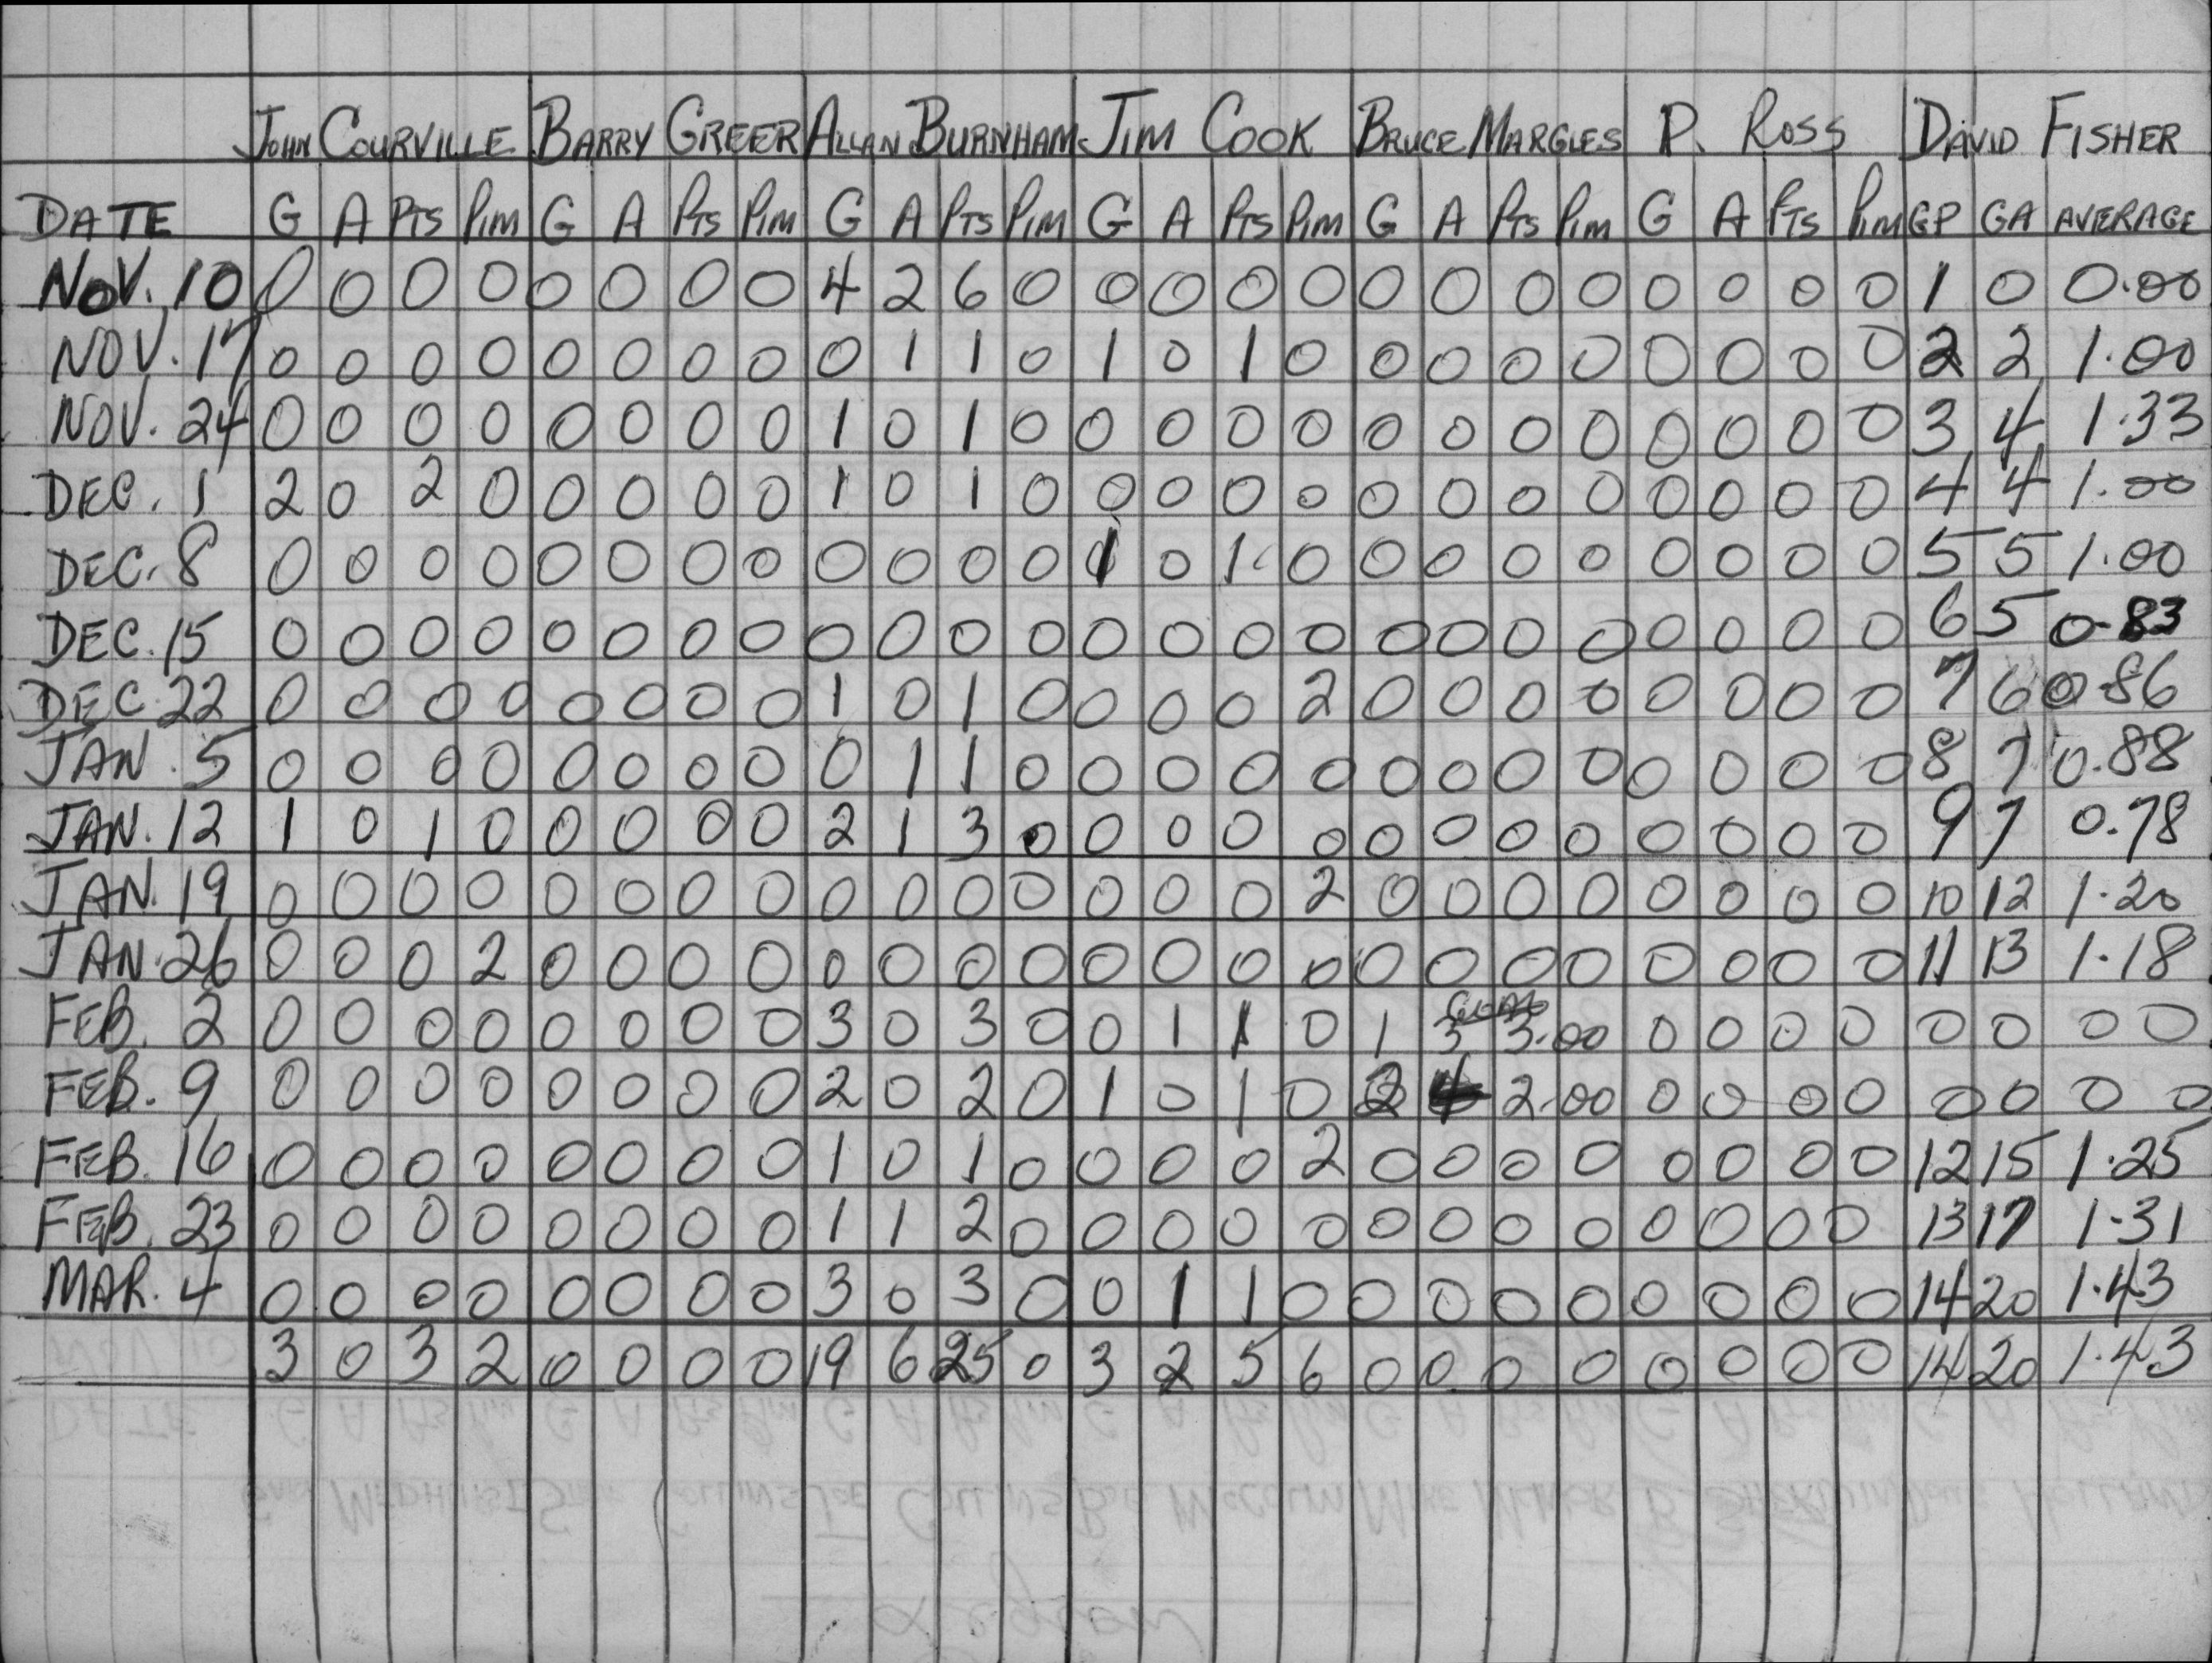 JOHN COURVILLE BARRY GREER ALLAN BURNHAM JIM COOK BRUCE MARGLES P. ROSS DAVID FISHER
DATE G A PTS PIM G A PTS PIM G A PTS PIM G A PTS PIM G A PTS PIM G A PTS PIM GP GA AVERAGE
NOV. 10 0 0 0 0 0 0 0 0 4 2 6 0 0 0 0 0 0 0 0 0 0 0 0 0 1 0 0.00
NOV. 17 0 0 0 0 0 0 0 0 0 1 1 0 1 0 1 0 0 0 0 0 0 0 0 0 2 2 1.00
NOV. 24 0 0 0 0 0 0 0 0 1 0 1 0 0 0 0 0 0 0 0 0 0 0 0 0 3 4 1.33
DEC. 1 2 0 2 0 0 0 0 0 1 0 1 0 0 0 0 0 0 0 0 0 0 0 0 0 4 4 1.00
DEC. 8 0 0 0 0 0 0 0 0 0 0 0 0 1 0 1 0 0 0 0 0 0 0 0 0 5 5 1.00
DEC. 15 0 0 0 0 0 0 0 0 0 0 0 0 0 0 0 0 0 0 0 0 0 0 0 0 6 5 0.83
DEC. 22 0 0 0 0 0 0 0 0 1 0 1 0 0 0 0 2 0 0 0 0 0 0 0 0 7 6 0.86
JAN. 5 0 0 0 0 0 0 0 0 0 1 1 0 0 0 0 0 0 0 0 0 0 0 0 0 8 7 0.88
JAN. 12 1 0 1 0 0 0 0 0 2 1 3 0 0 0 0 0 0 0 0 0 0 0 0 0 9 7 0.78
JAN. 19 0 0 0 0 0 0 0 0 0 0 0 0 0 0 0 2 0 0 0 0 0 0 0 0 10 12 1.20
JAN. 26 0 0 0 2 0 0 0 0 0 0 0 0 0 0 0 0 0 0 0 0 0 0 0 0 11 13 1.18
FEB. 2 0 0 0 0 0 0 0 0 3 0 3 0 0 1 1 0 1 3 3.00 0 0 0 0 0 0 0 0
FEB. 9 0 0 0 0 0 0 0 0 2 0 2 0 1 0 1 0 2 4 2.00 0 0 0 0 0 0 0 0
FEB. 16 0 0 0 0 0 0 0 0 1 0 1 0 0 0 0 2 0 0 0 0 0 0 0 0 12 15 1.25
FEB. 23 0 0 0 0 0 0 0 0 1 1 2 0 0 0 0 0 0 0 0 0 0 0 0 0 13 17 1.31
MAR. 4 0 0 0 0 0 0 0 0 3 0 3 0 0 1 1 0 0 0 0 0 0 0 0 0 14 20 1.43
3 0 3 2 0 0 0 0 19 6 25 0 3 2 5 6 0 0 0 0 0 0 0 0 14 20 1.43